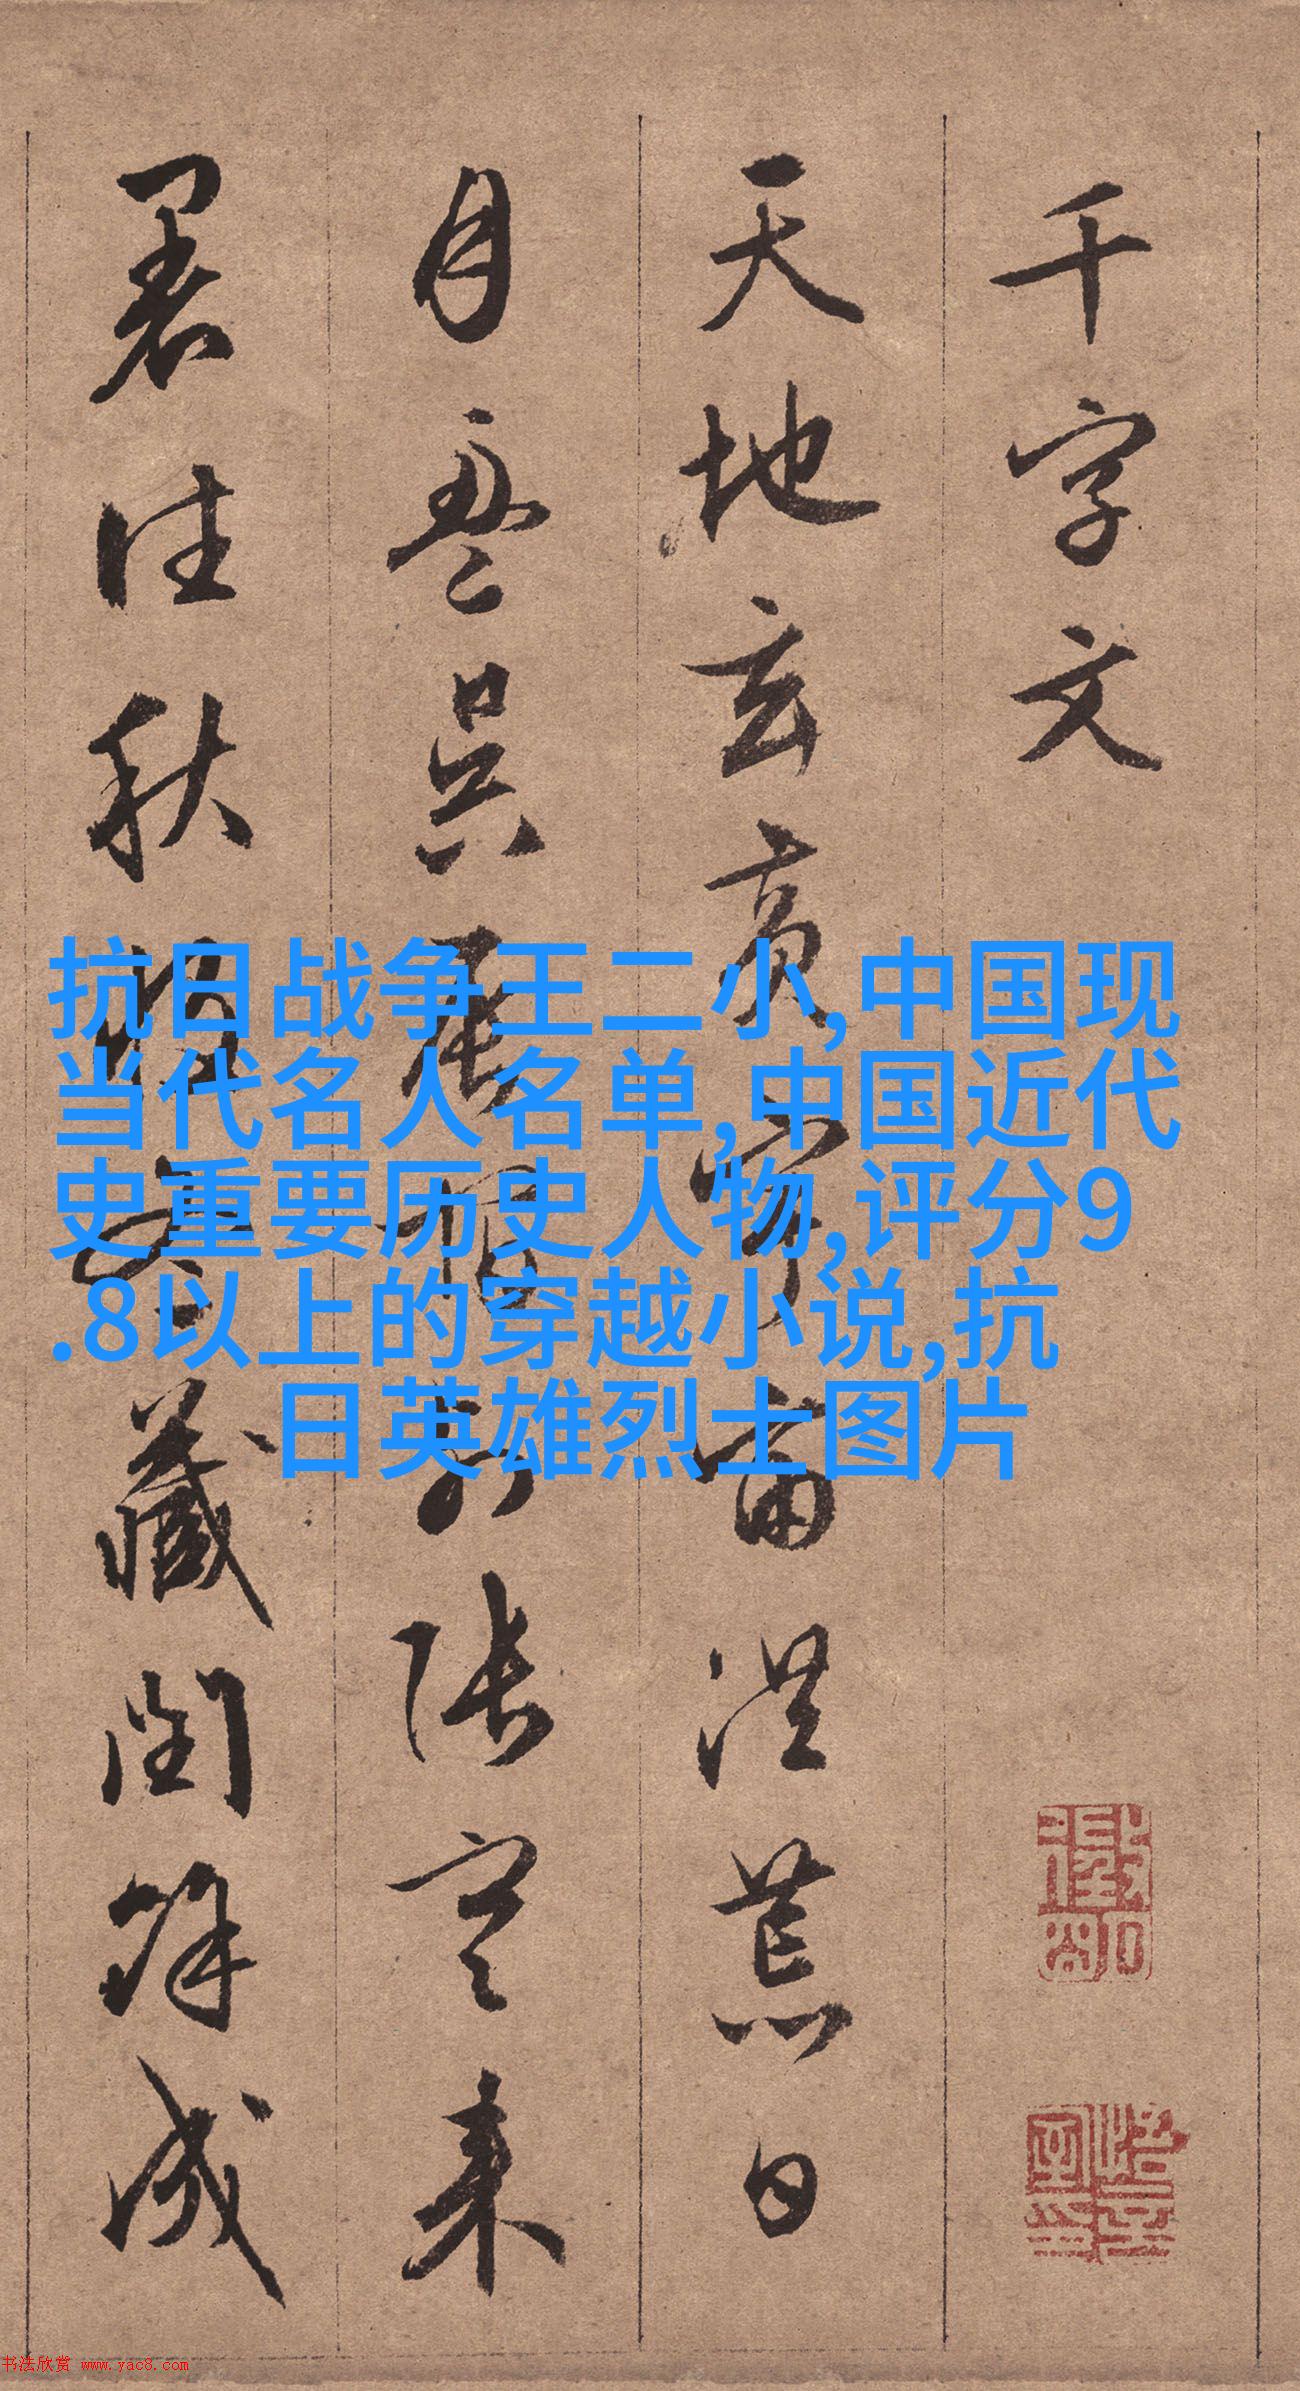 千字文
天地玄黄宇宙洪荒日
月盈昃辰宿列张寒来
暑往秋收冬藏闰馀成
抗日战争王二小,中国现
当代名人名单,中国近代
史重要历史人物,评分9
.8以上的穿越小说,抗
日英雄烈士图片
书法欣赏 www.yac8.com